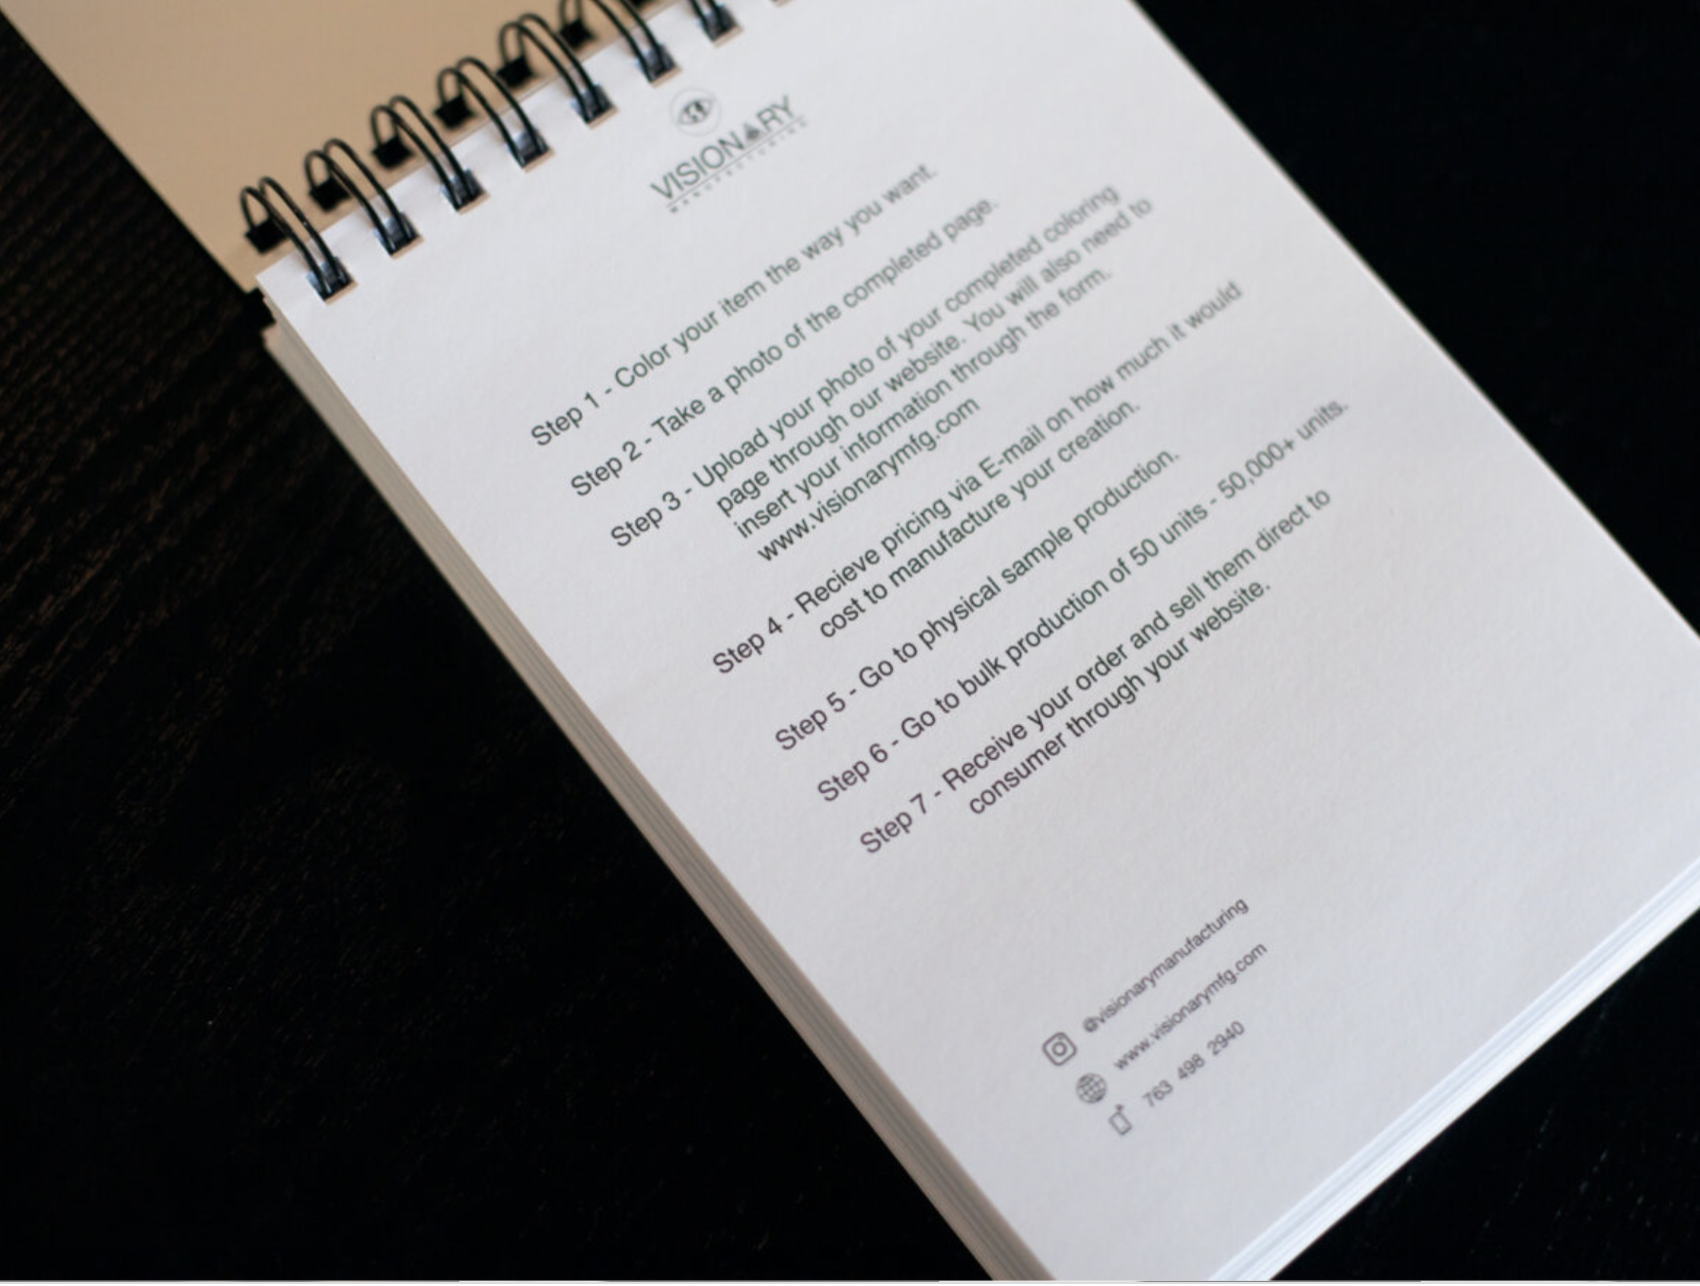 VISIONARY
MANUFACTURING
Step 1 - Color your item the way you want.
Step 2 - Take a photo of the completed page.
Step 3 - Upload your photo of your completed coloring
page through our website. You will also need to
insert your information through the form.
www.visionarymfg.com
Step 4 - Recieve pricing via E-mail on how much it would
cost to manufacture your creation.
Step 5 - Go to physical sample production.
Step 6 - Go to bulk production of 50 units - 50,000+ units.
Step 7 - Receive your order and sell them direct to
consumer through your website.
@visionarymanufacturing
www.visionarymfg.com
763 498 2940